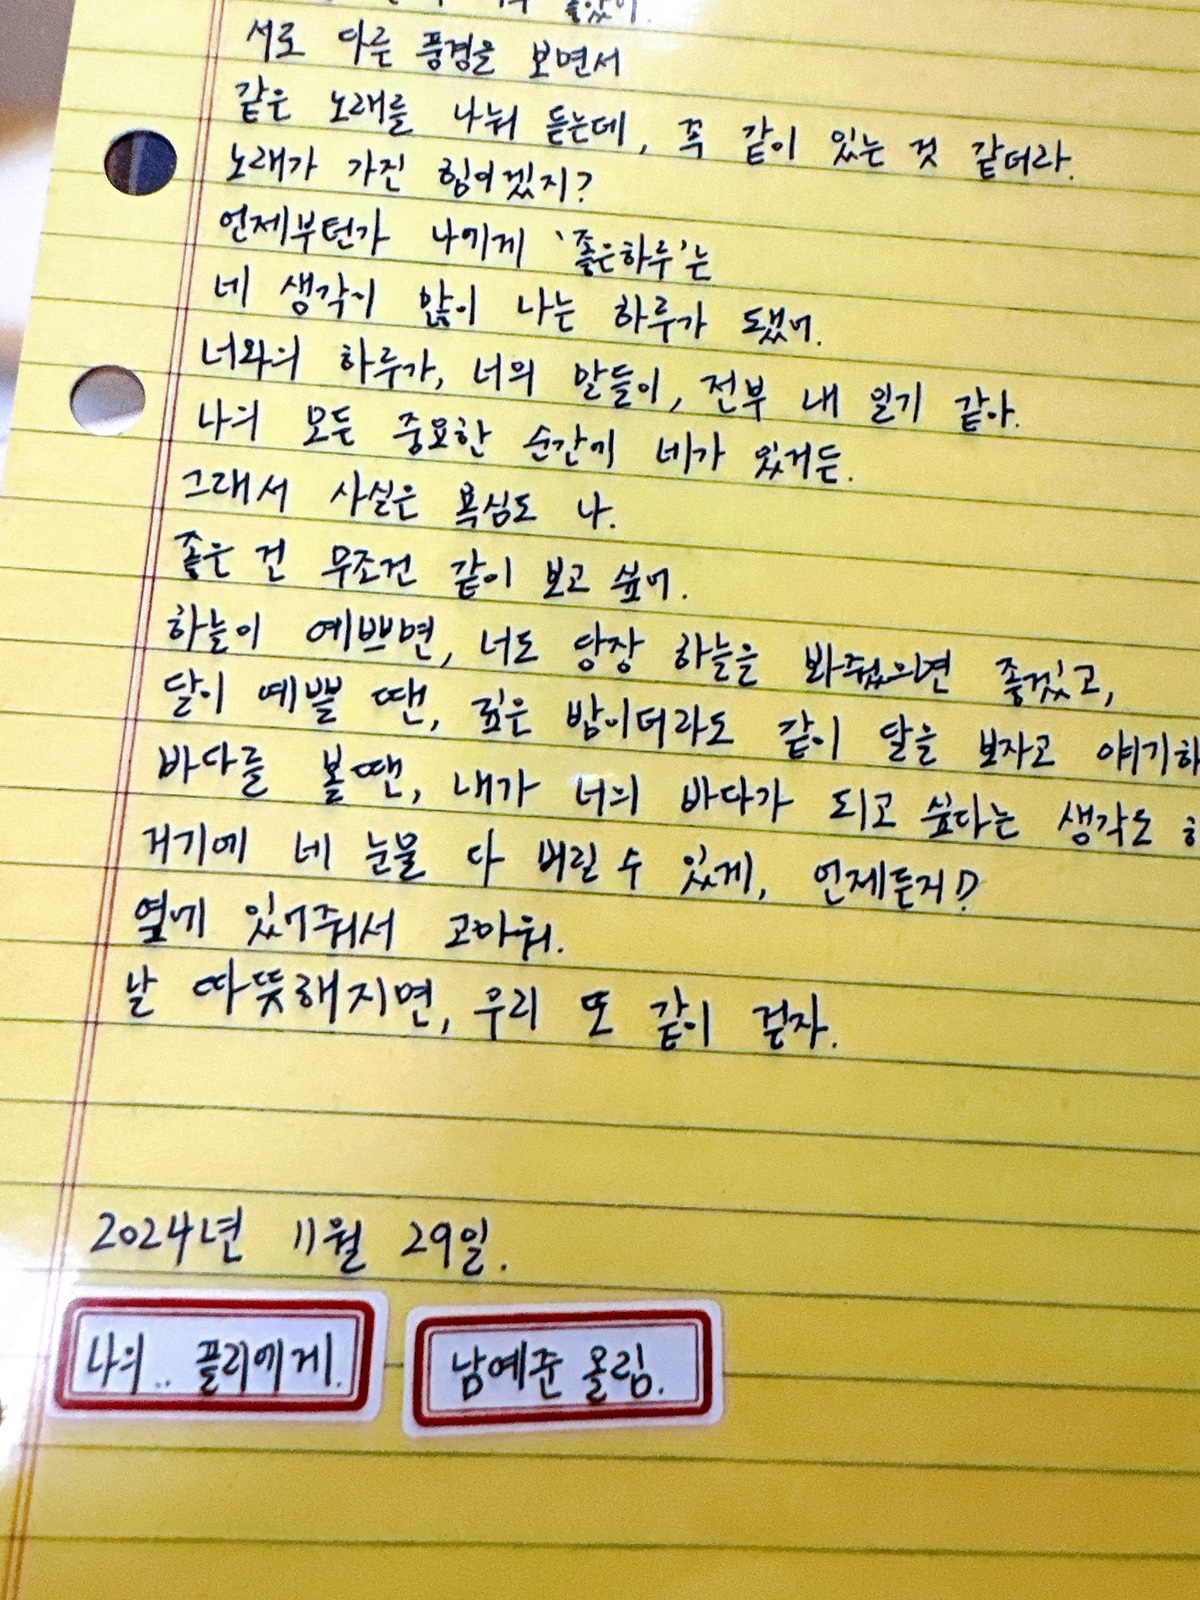 서로 다른 풍경을 보면서
같은 노래를 나눠 듣는데, 꼭 같이 있는 것 같더라.
노래가 가진 힘이겠지?
언제부턴가 나에게 '좋은하루'는
네 생각이 많이 나는 하루가 됐어.
너와의 하루가, 너의 말들이, 전부 내 일기 같아.
나의 모든 중요한 순간에 네가 있거든.
그래서 사실은 욕심도 나.
좋은 건 무조건 같이 보고 싶어.
하늘이 예쁘면, 너도 당장 하늘을 봐줬으면 좋겠고,
달이 예쁠 땐, 깊은 밤이더라도 같이 달을 보자고 얘기하
바다를 볼땐, 내가 너의 바다가 되고 싶다는 생각도
거기에 네 눈물 다 버릴 수 있게, 언제든지!?
옆에 있어줘서 고마워.
날 따뜻해지면, 우리 또 같이 걷자.
2024년 11월 29일.
나의.. 플리에게.
남예준 올림.